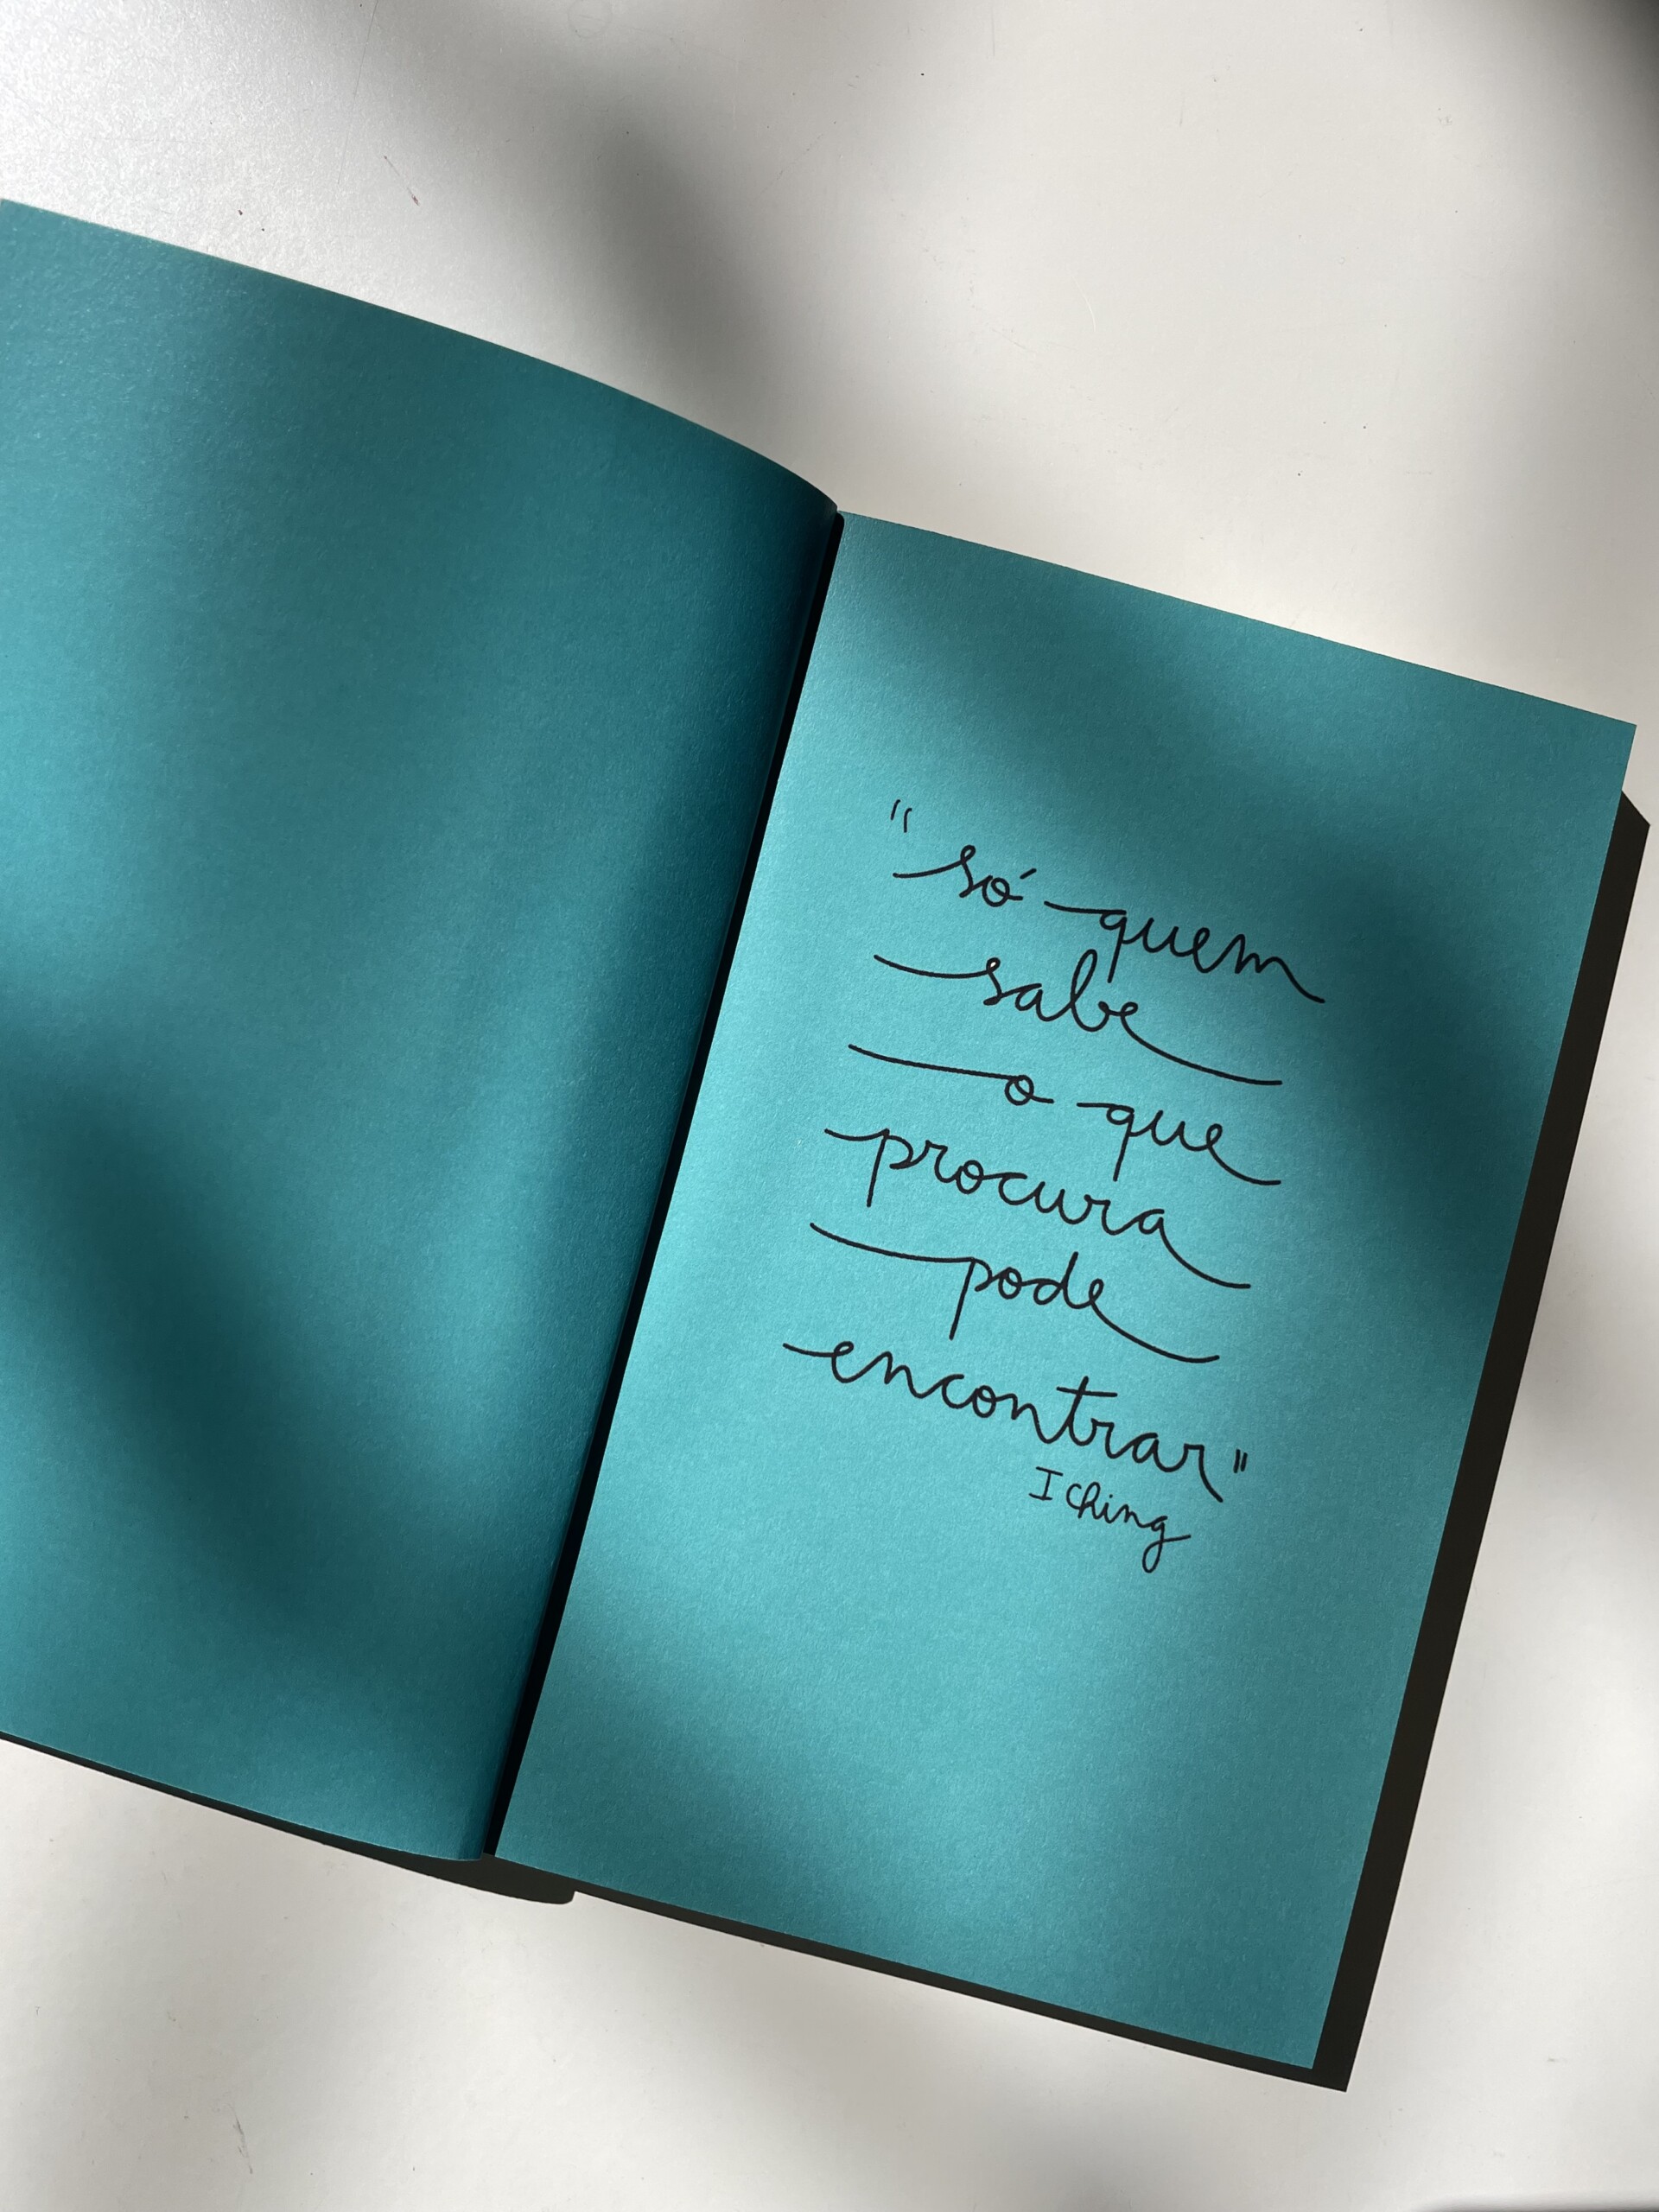 "só quem
sabe
o que
procura
pode
encontrar"
I Ching